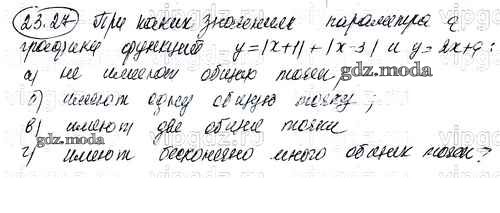 23.27 При каких значениях параметра q
графики функций y=|x+1|+|x-3| и y=2x+q:
а) не имеют общих точек,
gdz.moda
б) имеют одну общую точку;
в) имеют две общие точки
gdz.moda
г) имеют бесконечно много общих точек?